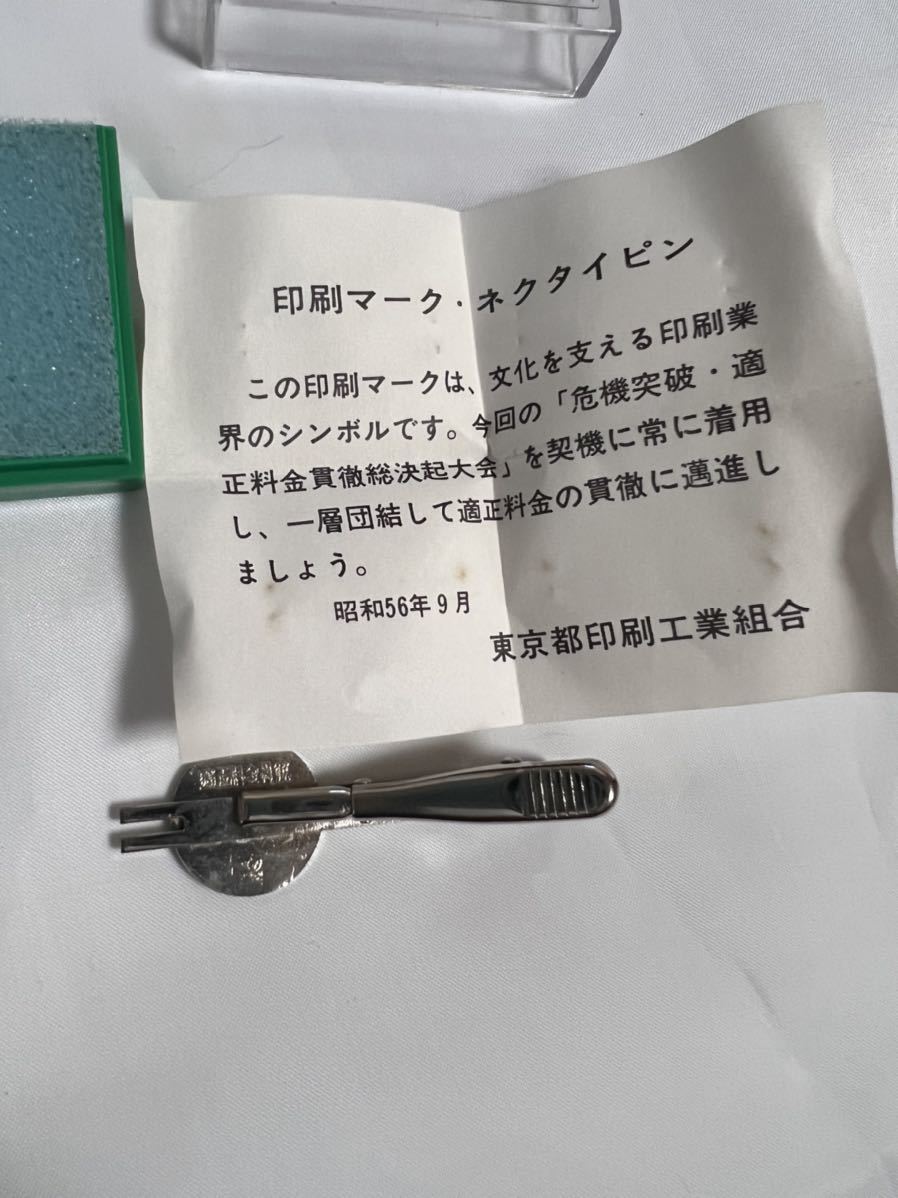 印刷マーク・ネクタイピン
この印刷マークは、文化を支える印刷業
界のシンボルです。今回の「危機突破・適
正料金貫徹総決起大会」を契機に常に着用
し、一層団結して適正料金の貫徹に邁進し
ましょう。
昭和56年9月
東京都印刷工業組合
適正料金貫徹